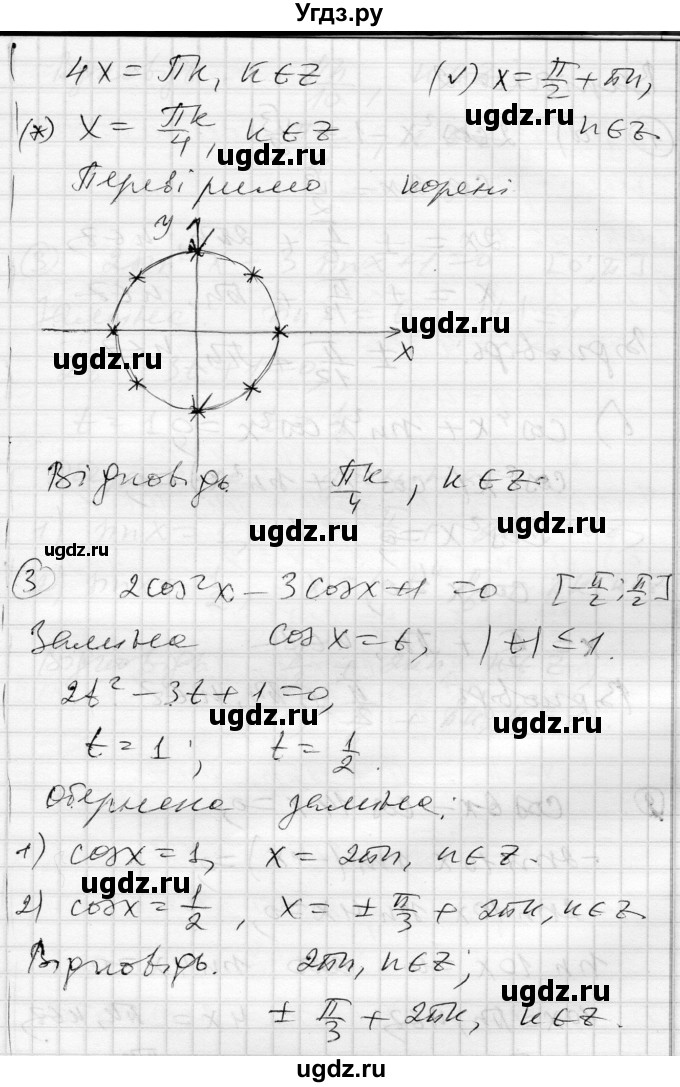 Угдз.ру
4x = πk, k ∈ Z (v) x = π/2 + πn,
(*) x = πk/4, k ∈ Z n ∈ Z.
ugdz.ru
ugdz.ru
Перевіримо корені
y
ugdz.ru
x
ugdz.ru
Відповідь πk/4, k ∈ Z.
ugdz.ru
ugdz.ru
ugdz.ru
③ 2cos²x - 3cosx + 1 = 0 [-π/2; π/2]
Заміна cos x = t, |t| ≤ 1.
2t² - 3t + 1 = 0,
ugdz.ru
ugdz.ru
t = 1; t = 1/2.
Обернена заміна:
1) cosx = 1, x = 2πn, n ∈ Z.
ugdz.ru
2) cosx = 1/2, x = ± π/3 + 2πk, k ∈ Z
Відповідь. 2πn, n ∈ Z;
ugdz.ru
± π/3 + 2πk, k ∈ Z.
ugdz.ru